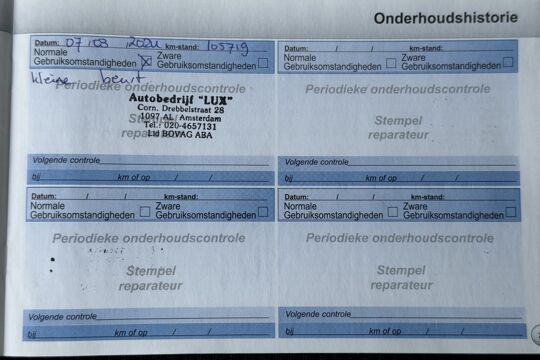 Onderhoudshistorie
Datum: 07 / 03 / 2024 km-stand: 105719
Normale Gebruiksomstandigheden Zware Gebruiksomstandigheden
kleine beurt
Periodieke onderhoudscontrole
Stempel
reparateur
Autobedrijf "LUX"
Corn. Drebbelstraat 28
1097 AL / Amsterdam
Tel.: 020-4657131
Lid BOVAG ABA
Volgende controle
bij km of op / /
Datum: / / km-stand:
Normale Gebruiksomstandigheden Zware Gebruiksomstandigheden
Periodieke onderhoudscontrole
Stempel
reparateur
Volgende controle
bij km of op / /
Datum: / / km-stand:
Normale Gebruiksomstandigheden Zware Gebruiksomstandigheden
Periodieke onderhoudscontrole
Stempel
reparateur
Volgende controle
bij km of op / /
Datum: / / km-stand:
Normale Gebruiksomstandigheden Zware Gebruiksomstandigheden
Periodieke onderhoudscontrole
Stempel
reparateur
Volgende controle
bij km of op / /